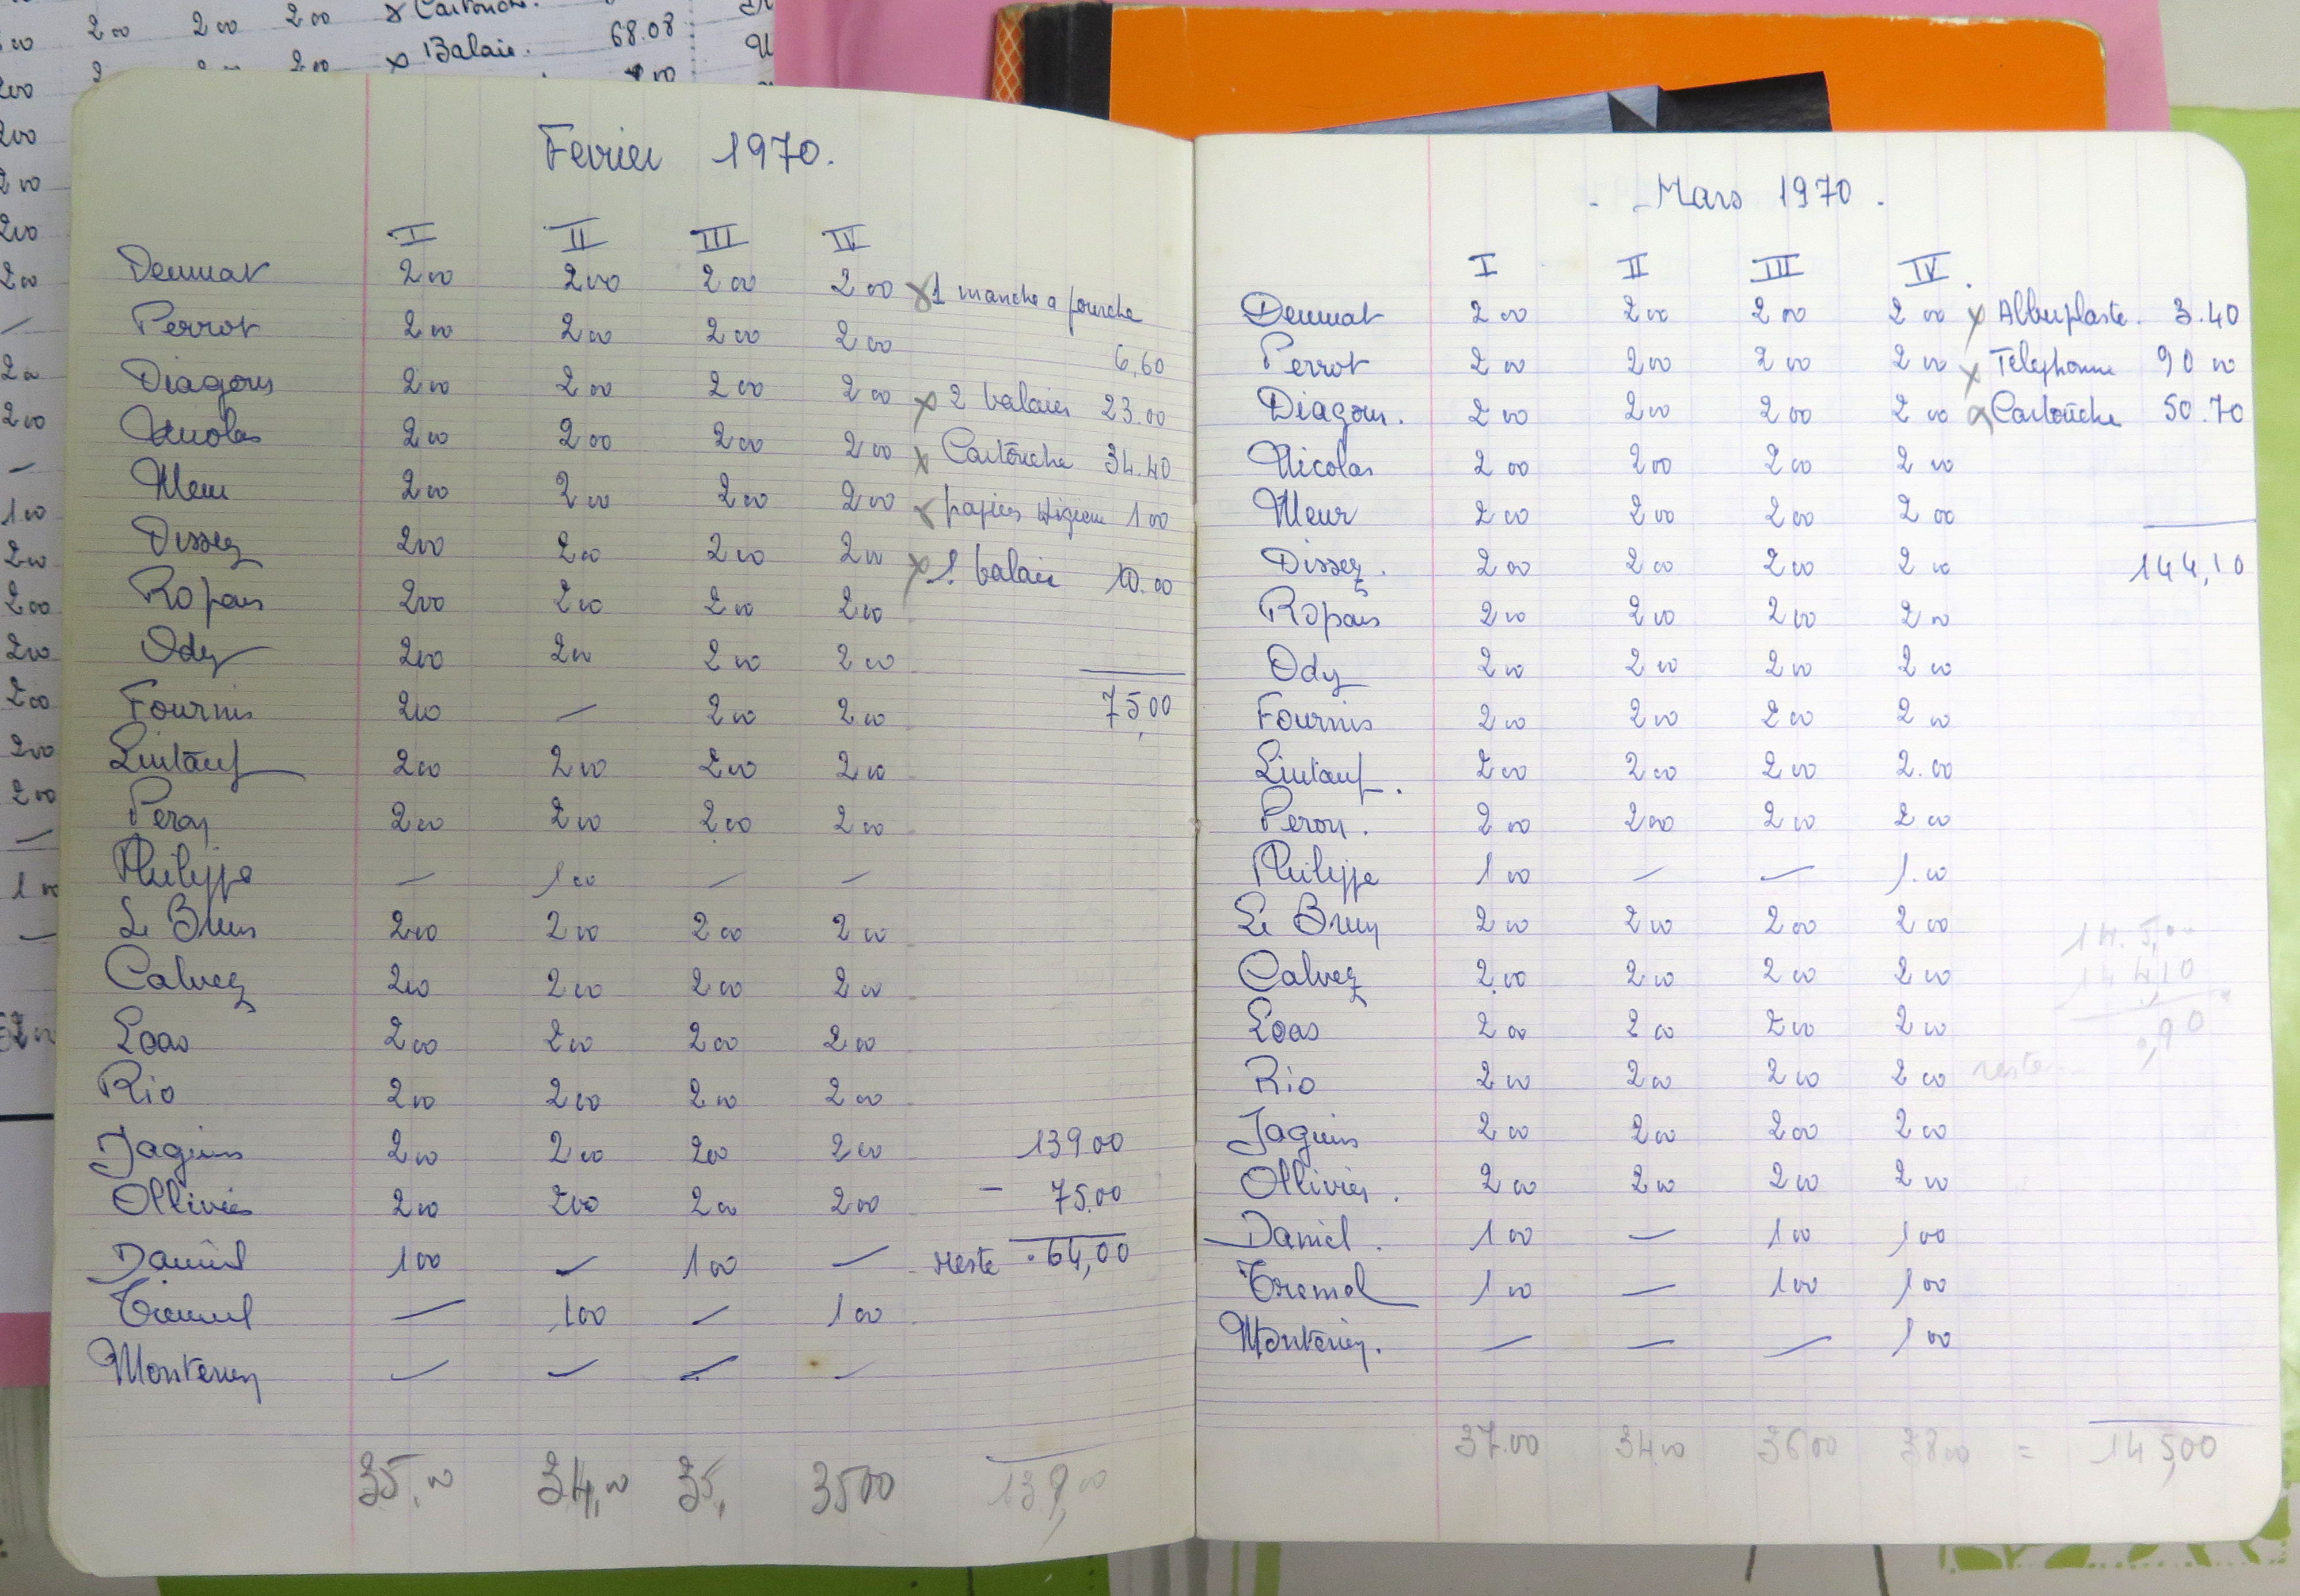 200 200 200 x Cartouche.
x Balaie. 68.08
Fevrier 1970.
I II III IV
Denmat 200 200 200 200 x 1 manche a fourche
Perrot 200 200 200 200
6,60
Diagons 200 200 200 200 x 2 balaies 23.00
Nicolas 200 200 200 200 x Cartouche 34.40
Meur 200 200 200 200 x papier Higiene 100
Dissez 200 200 200 200 x 1 balaie 10.00
Ropars 200 200 200 200
Ody 200 200 200 200
Fournis 200 — 200 200 75,00
Lintanf 200 200 200 200
Peron 200 200 200 200
Philippe — 100 — —
Le Brun 200 200 200 200
Calvez 200 200 200 200
Loas 200 200 200 200
Rio 200 200 200 200
Jaguins 200 200 200 200 13900
Ollivier 200 200 200 200 - 75.00
Daniel 100 — 100 — reste 64,00
Tremel — 100 — 100
Monterrey — — — —
35,00 34,00 35, 3500 139,00
Mars 1970.
I II III IV.
Denmat 200 200 200 200 x Albuplaste. 3.40
Perrot 200 200 200 200 x Telephonne 90 00
Diagons. 200 200 200 200 x Cartouche 50.70
Nicolas 200 200 200 200
Meur 200 200 200 200
Dissez. 200 200 200 200 144,10
Ropars 200 200 200 200
Ody 200 200 200 200
Fournis 200 200 200 200
Lintanf. 200 200 200 2.00
Peron. 200 200 200 200
Philippe 100 — — 1.00
Le Brun 200 200 200 200
14.5,00
Calvez 200 200 200 200 14410
Loas 200 200 200 200 0,90
Rio 200 200 200 200 reste
Jaguins 200 200 200 200
Ollivier. 200 200 200 200
Daniel. 100 — 100 100
Tremel 100 — 100 100
Monterrey. — — — 100
37.00 34.00 3600 38.00 = 145,00